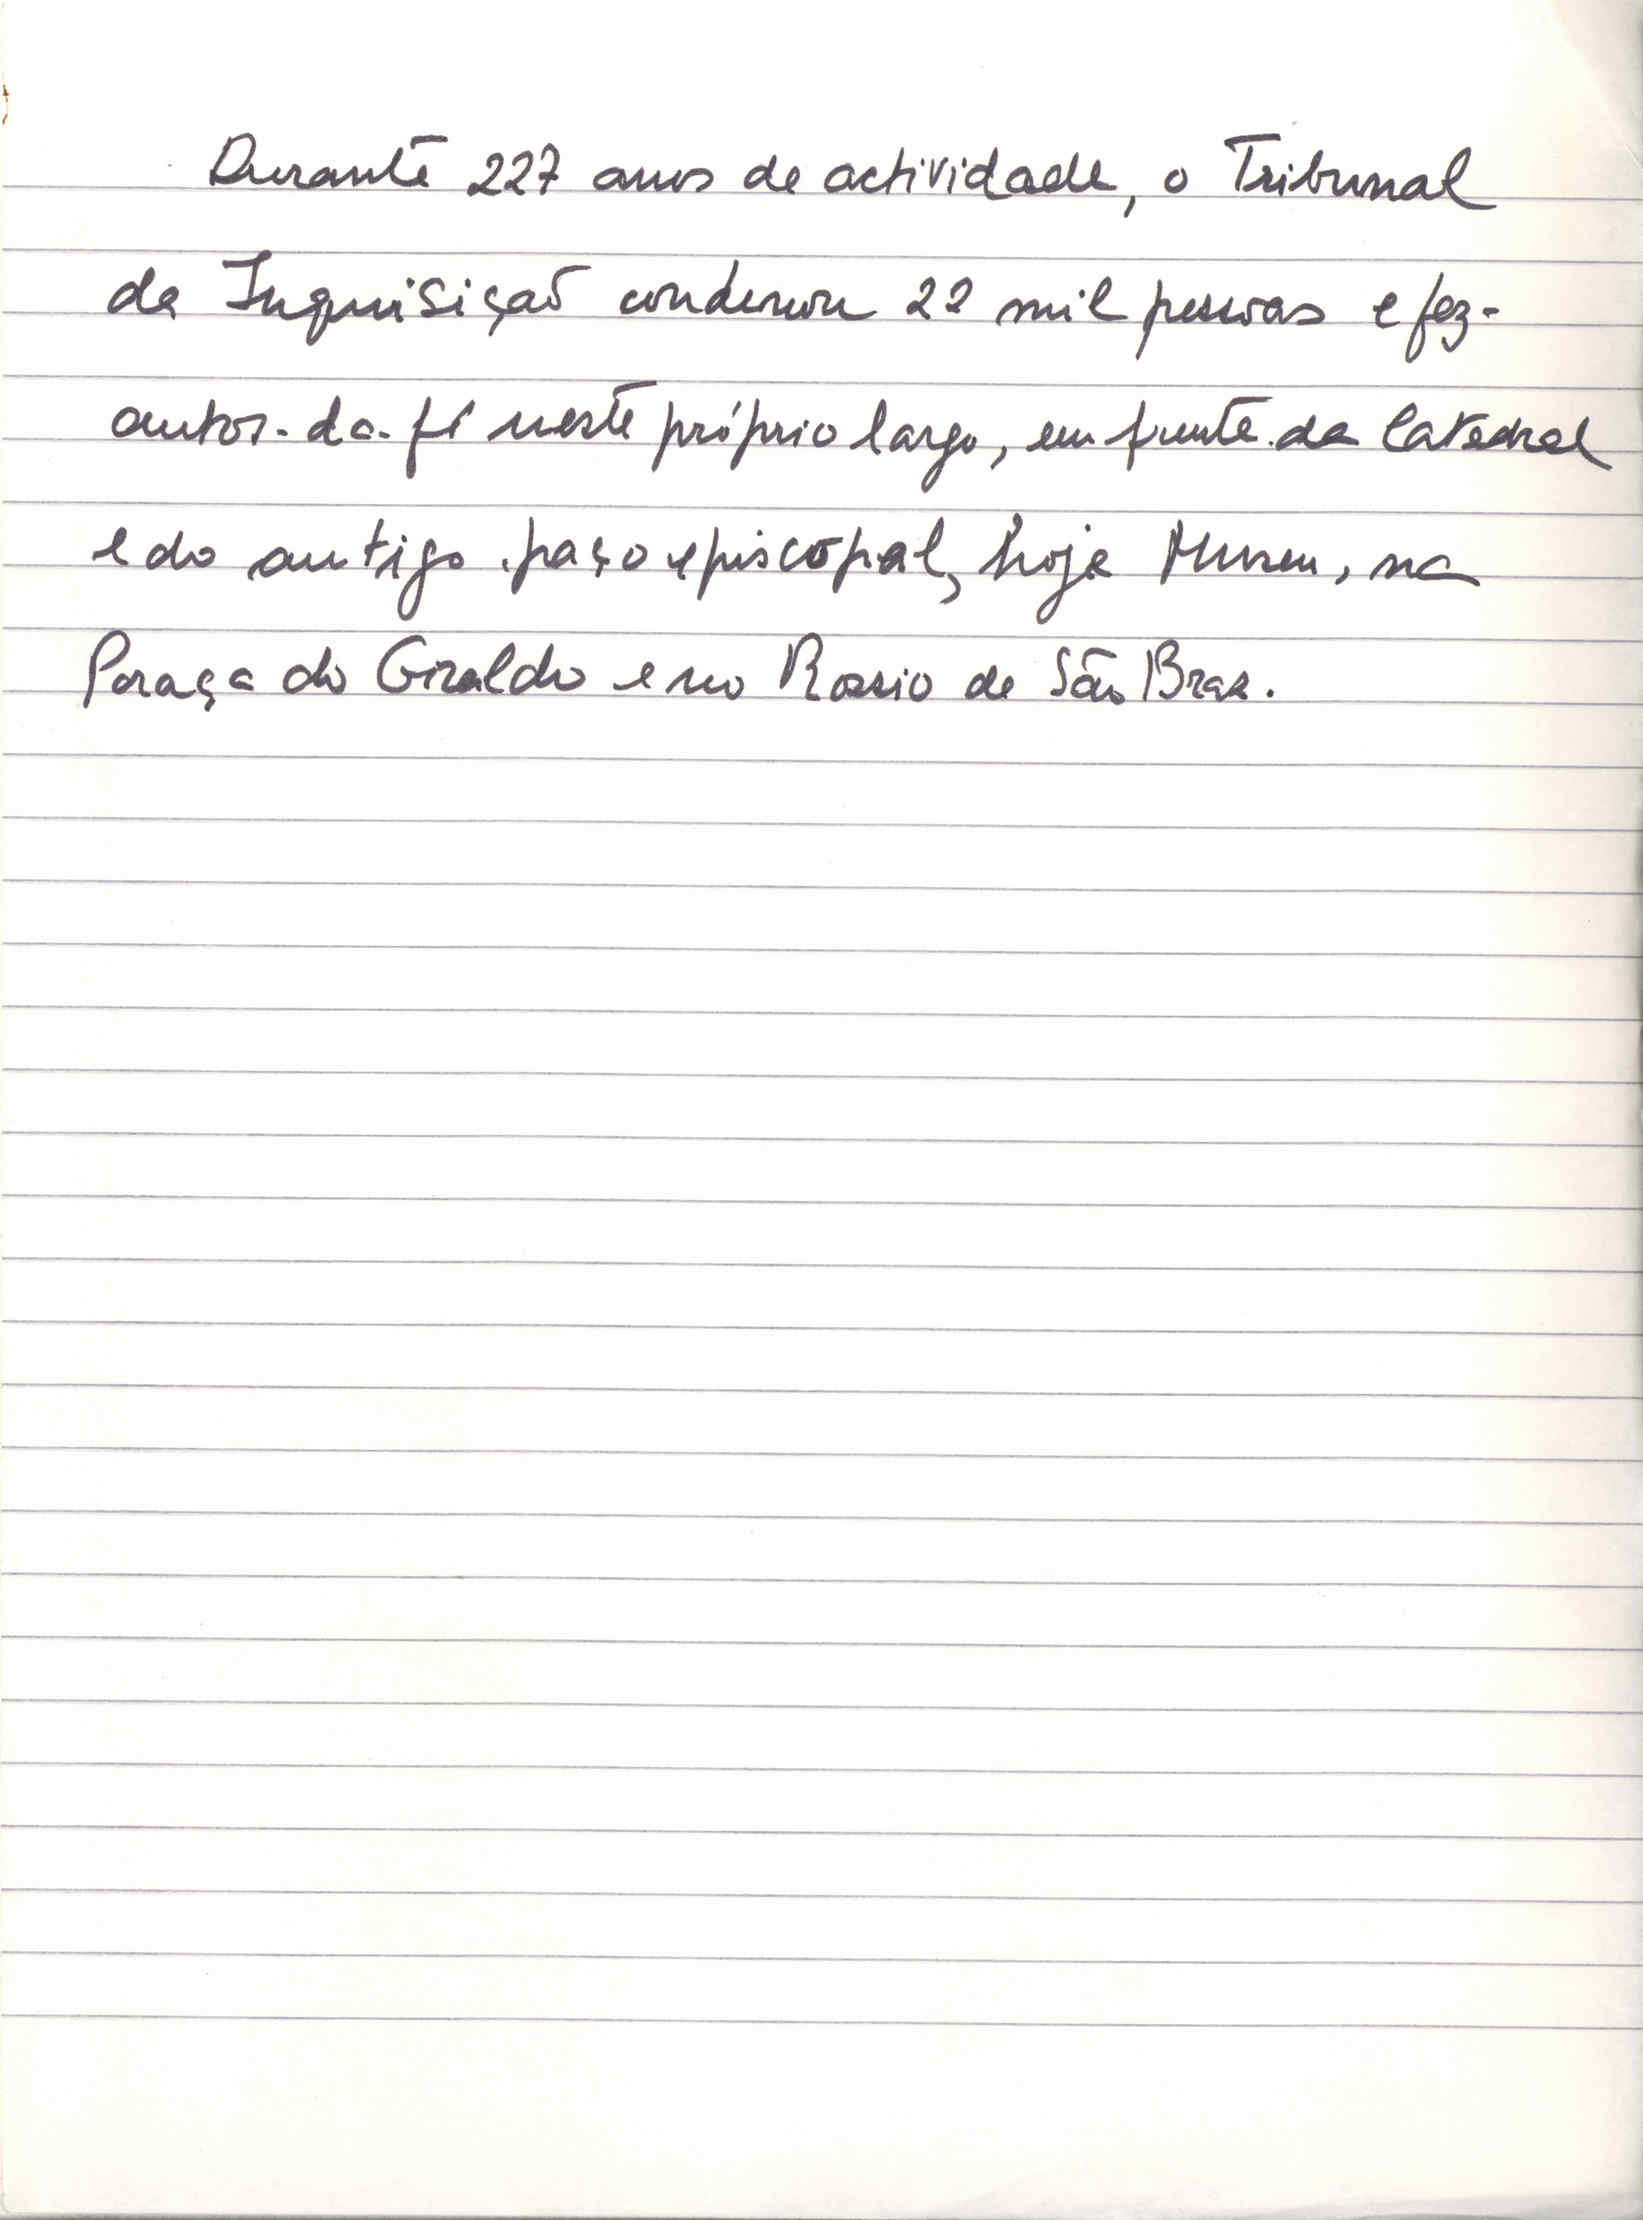 Durante 227 anos de actividade, o Tribunal
da Inquisição condenou 22 mil pessoas e fez-
autos-da-fé neste próprio largo, em frente da Catedral
e do antigo paço episcopal, hoje Museu, na
Praça do Giraldo e no Rossio de São Braz.